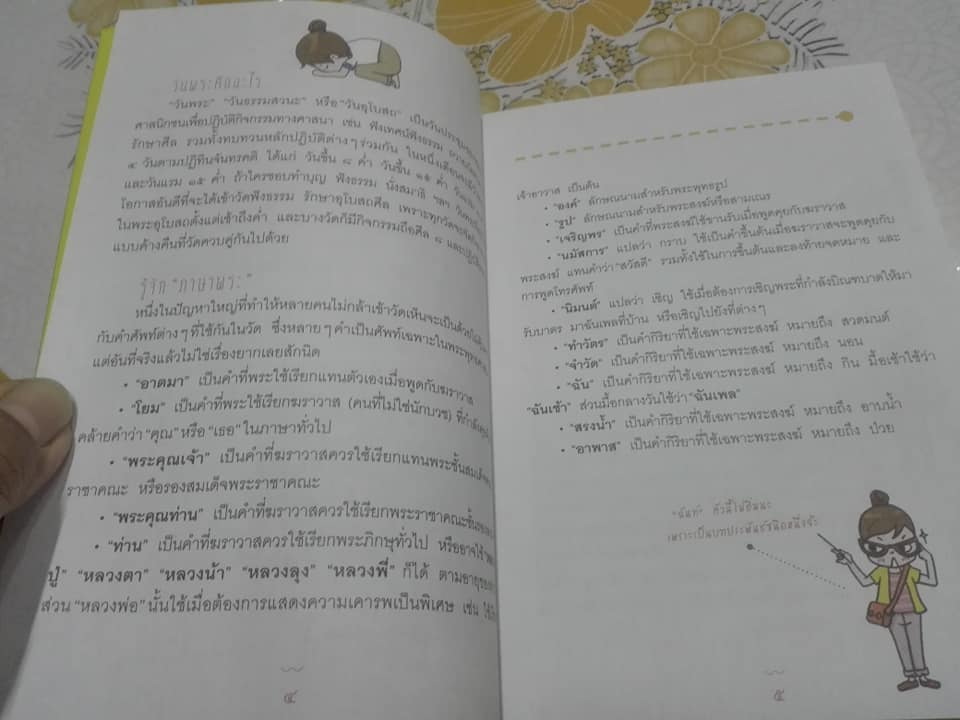 วันพระคืออะไร
"วันพระ" "วันธรรมสวนะ" หรือ "วันอุโบสถ" เป็นวันประชุม
ศาสนิกชนเพื่อปฏิบัติกิจกรรมทางศาสนา เช่น ฟังเทศน์ฟังธรรม
รักษาศีล รวมทั้งทบทวนหลักปฏิบัติต่างๆ ร่วมกัน ในหนึ่งเดือน
๔ วันตามปฏิทินจันทรคติ ได้แก่ วันขึ้น ๘ ค่ำ วันขึ้น ๑๕ ค่ำ
และวันแรม ๑๕ ค่ำ ถ้าใครชอบทำบุญ ฟังธรรม นั่งสมาธิ
โอกาสอันดีที่จะได้เข้าวัดฟังธรรม รักษาอุโบสถศีล เพราะทุกวัดจะ
ในพระอุโบสถตั้งแต่เช้าถึงค่ำ และบางวัดก็มีกิจกรรมถือศีล ๘ และ
แบบค้างคืนที่วัดควบคู่กันไปด้วย
รู้จัก "ภาษาพระ"
หนึ่งในปัญหาใหญ่ที่ทำให้หลายคนไม่กล้าเข้าวัดเห็นจะเป็นด้วย
กับคำศัพท์ต่างๆ ที่ใช้กันในวัด ซึ่งหลายๆ คำเป็นศัพท์เฉพาะใน
แต่อันที่จริงแล้วไม่ใช่เรื่องยากเลยสักนิด
• "อาตมา" เป็นคำที่พระใช้เรียกแทนตัวเองเมื่อพูดกับฆราวาส
• "โยม" เป็นคำที่พระใช้เรียกฆราวาส (คนที่ไม่ใช่นักบวช)
คล้ายคำว่า "คุณ" หรือ "เธอ" ในภาษาทั่วไป
• "พระคุณเจ้า" เป็นคำที่ฆราวาสควรใช้เรียกแทนพระชั้นสมเด็จ
ราชาคณะ หรือรองสมเด็จพระราชาคณะ
• "พระคุณท่าน" เป็นคำที่ฆราวาสควรใช้เรียกพระราชาคณะชั้น
• "ท่าน" เป็นคำที่ฆราวาสควรใช้เรียกพระภิกษุทั่วไป หรืออาจใช้
ปู่" "หลวงตา" "หลวงน้า" "หลวงลุง" "หลวงพี่" ก็ได้ ตามอายุของ
ส่วน "หลวงพ่อ" นั้นใช้เมื่อต้องการแสดงความเคารพเป็นพิเศษ เช่น ใช้
๔
เจ้าอาวาส เป็นต้น
• "องค์" ลักษณนามสำหรับพระพุทธรูป
• "รูป" ลักษณนามสำหรับพระสงฆ์หรือสามเณร
• "เจริญพร" เป็นคำที่พระสงฆ์ใช้ขานรับเมื่อพูดคุยกับฆราวาส
• "นมัสการ" แปลว่า กราบ ใช้เป็นคำขึ้นต้นเมื่อฆราวาสจะพูดคุยกับ
พระสงฆ์ แทนคำว่า "สวัสดี" รวมทั้งใช้ในการขึ้นต้นและลงท้ายจดหมาย และ
การพูดโทรศัพท์
• "นิมนต์" แปลว่า เชิญ ใช้เมื่อต้องการเชิญพระที่กำลังบิณฑบาตให้มา
รับบาตร มาฉันเพลที่บ้าน หรือเชิญไปยังที่ต่างๆ
• "ทำวัตร" เป็นคำกิริยาที่ใช้เฉพาะพระสงฆ์ หมายถึง สวดมนต์
• "จำวัด" เป็นคำกิริยาที่ใช้เฉพาะพระสงฆ์ หมายถึง นอน
• "ฉัน" เป็นคำกิริยาที่ใช้เฉพาะพระสงฆ์ หมายถึง กิน มื้อเช้าใช้ว่า
"ฉันเช้า" ส่วนมื้อกลางวันใช้ว่า "ฉันเพล"
• "สรงน้ำ" เป็นคำกิริยาที่ใช้เฉพาะพระสงฆ์ หมายถึง อาบน้ำ
• "อาพาธ" เป็นคำกิริยาที่ใช้เฉพาะพระสงฆ์ หมายถึง ป่วย
เพราะเป็นบทประพันธ์ชนิดหนึ่งจ้ะ
๕